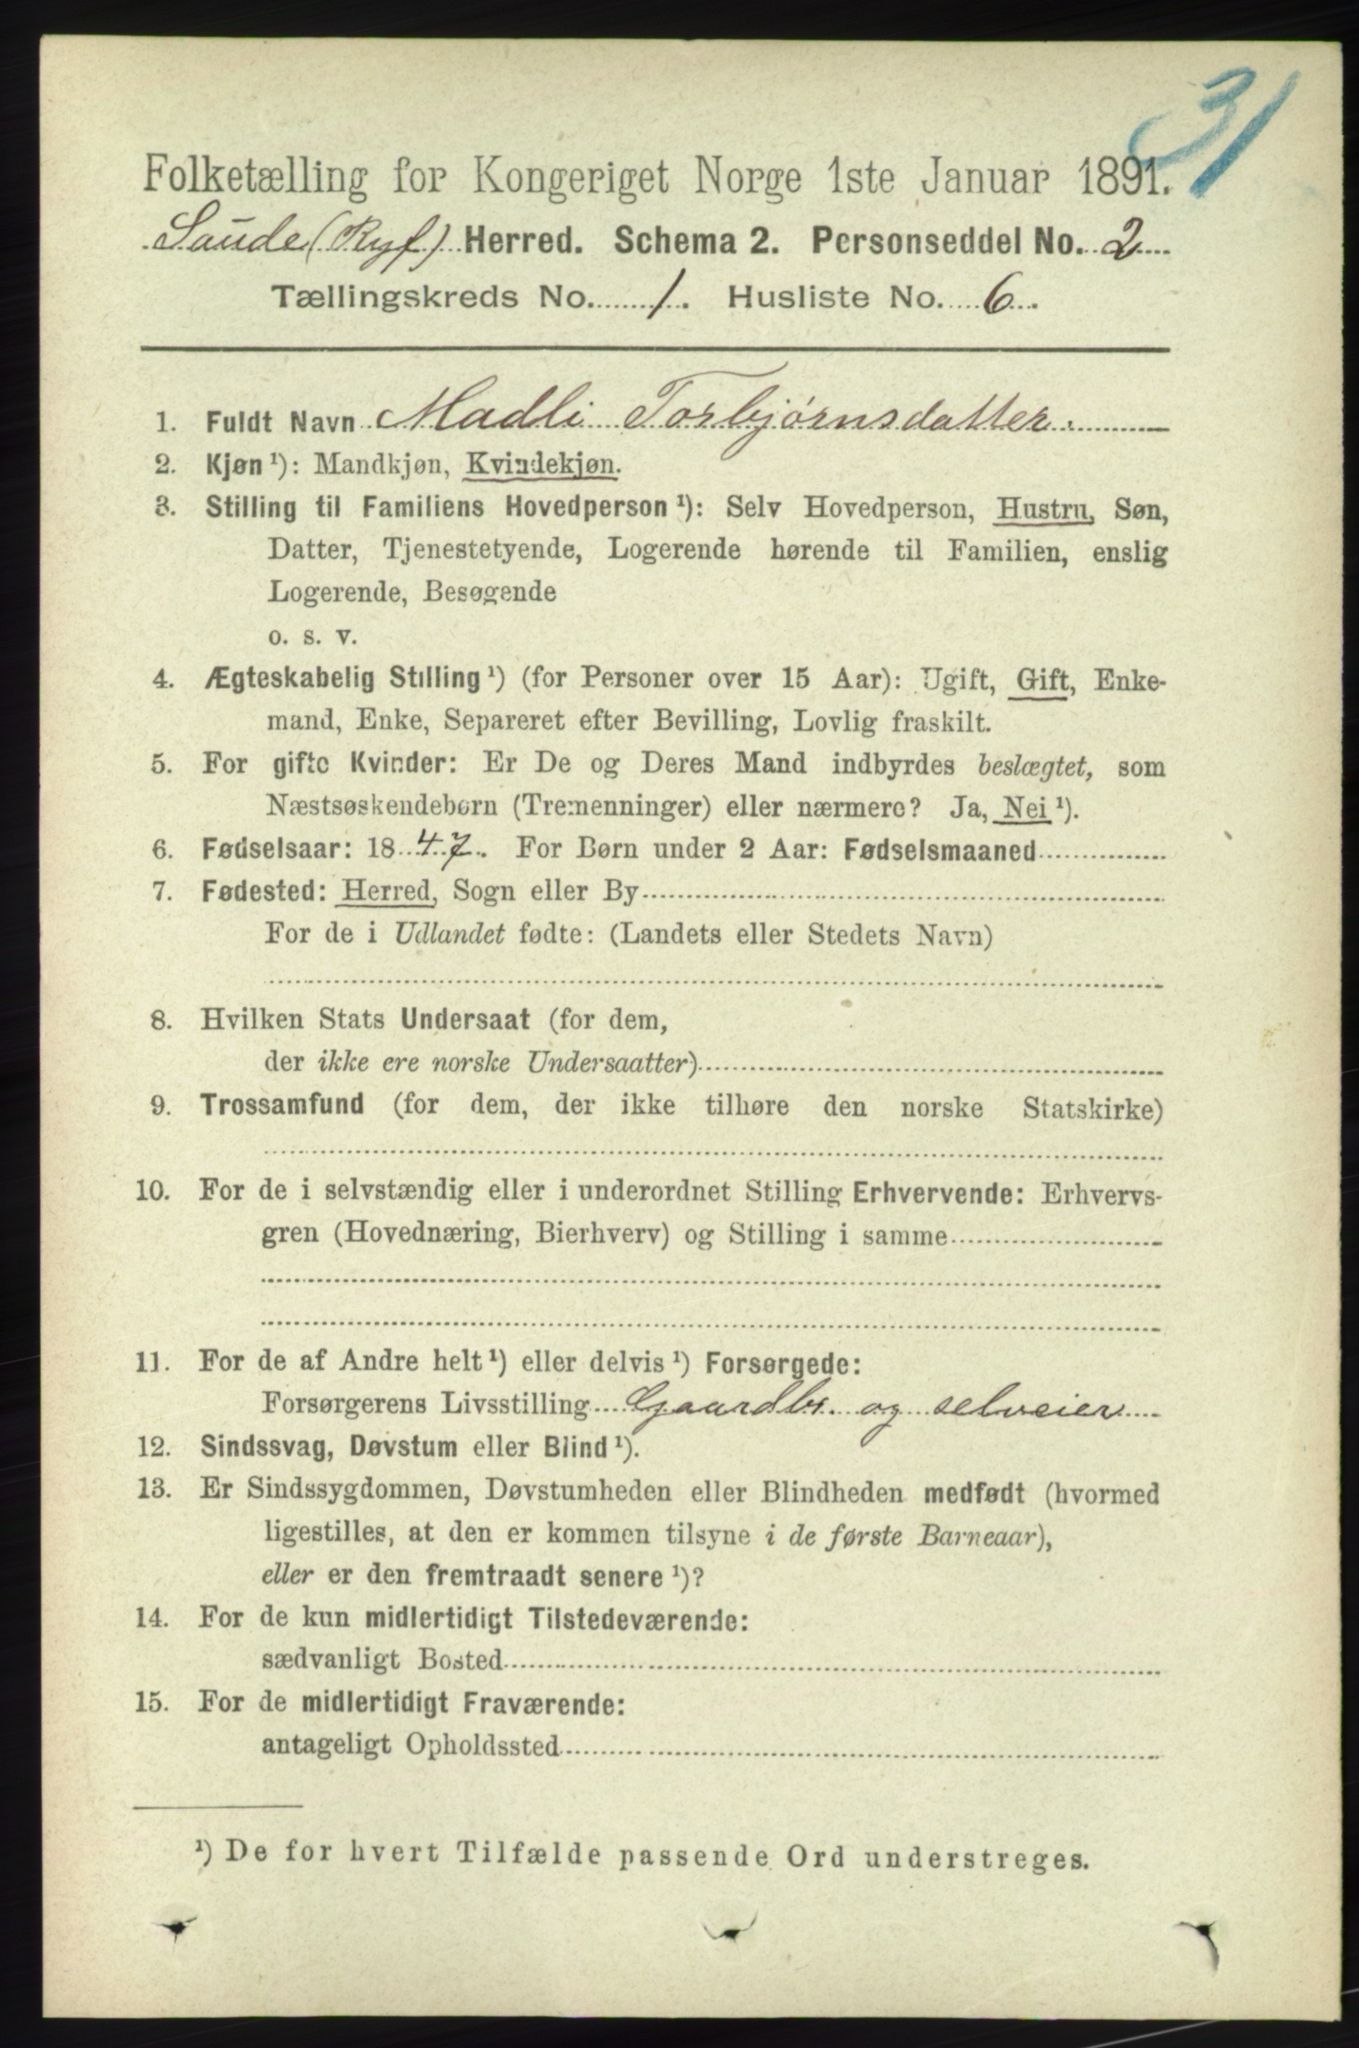 31
Folketælling for Kongeriget Norge 1ste Januar 1891.
Saude (Ryf) Herred. Schema 2. Personseddel No. 2
Tællingskreds No. 1. Husliste No. 6.
1. Fuldt Navn Madli Torbjørnsdatter.
2. Kjøn ¹): Mandkjøn, Kvindekjøn.
3. Stilling til Familiens Hovedperson ¹): Selv Hovedperson, Hustru, Søn,
Datter, Tjenestetyende, Logerende hørende til Familien, enslig
Logerende, Besøgende
o. s. v.
4. Ægteskabelig Stilling ¹) (for Personer over 15 Aar): Ugift, Gift, Enke-
mand, Enke, Separeret efter Bevilling, Lovlig fraskilt.
5. For gifte Kvinder: Er De og Deres Mand indbyrdes beslægtet, som
Næstsøskendebørn (Tremenninger) eller nærmere? Ja, Nei ¹).
6. Fødselsaar: 1847. For Børn under 2 Aar: Fødselsmaaned
7. Fødested: Herred, Sogn eller By
For de i Udlandet fødte: (Landets eller Stedets Navn)
8. Hvilken Stats Undersaat (for dem,
der ikke ere norske Undersaatter)
9. Trossamfund (for dem, der ikke tilhøre den norske Statskirke)
10. For de i selvstændig eller i underordnet Stilling Erhvervende: Erhvervs-
gren (Hovednæring, Bierhverv) og Stilling i samme
11. For de af Andre helt ¹) eller delvis ¹) Forsørgede:
Forsørgerens Livsstilling Gaardbr. og selveier
12. Sindssvag, Døvstum eller Blind ¹).
13. Er Sindssygdommen, Døvstumheden eller Blindheden medfødt (hvormed
ligestilles, at den er kommen tilsyne i de første Barneaar),
eller er den fremtraadt senere ¹)?
14. For de kun midlertidigt Tilstedeværende:
sædvanligt Bosted
15. For de midlertidigt Fraværende:
antageligt Opholdssted
¹) De for hvert Tilfælde passende Ord understreges.